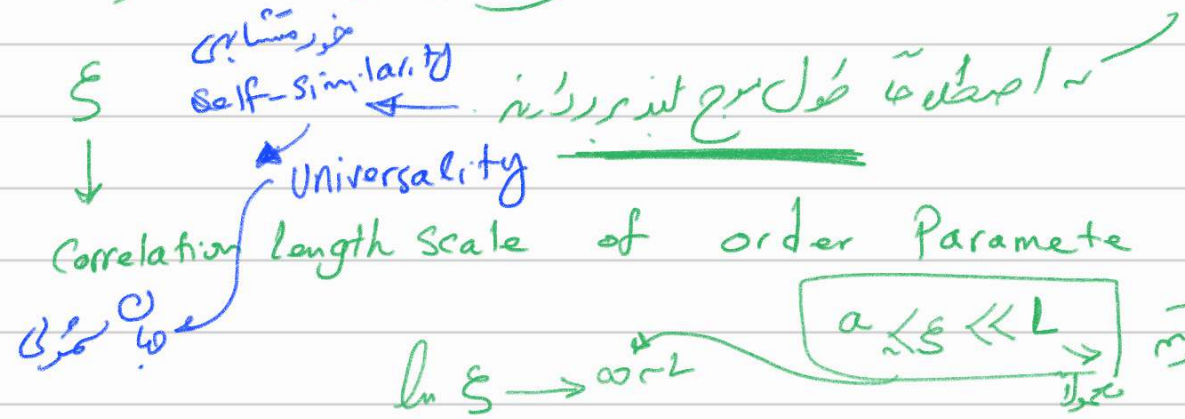 خودمتشابهی
ξ self-similarity ← که اصطلاحاً طول موج بلند بودند
Universality
Correlation length scale of order Paramete
جهان شمولی a ≤ ξ << L
ln ξ → ∞ ~ L معمولا